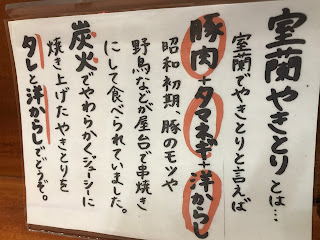 室蘭やきとりとは…
室蘭でやきとりと言えば
豚肉+タマネギ+洋からし
昭和初期、豚のモツや
野鳥などが屋台で串焼き
にして食べられていました。
炭火でやわらかくジューシーに
焼き上げたやきとりを
タレと洋からしでどうぞ。